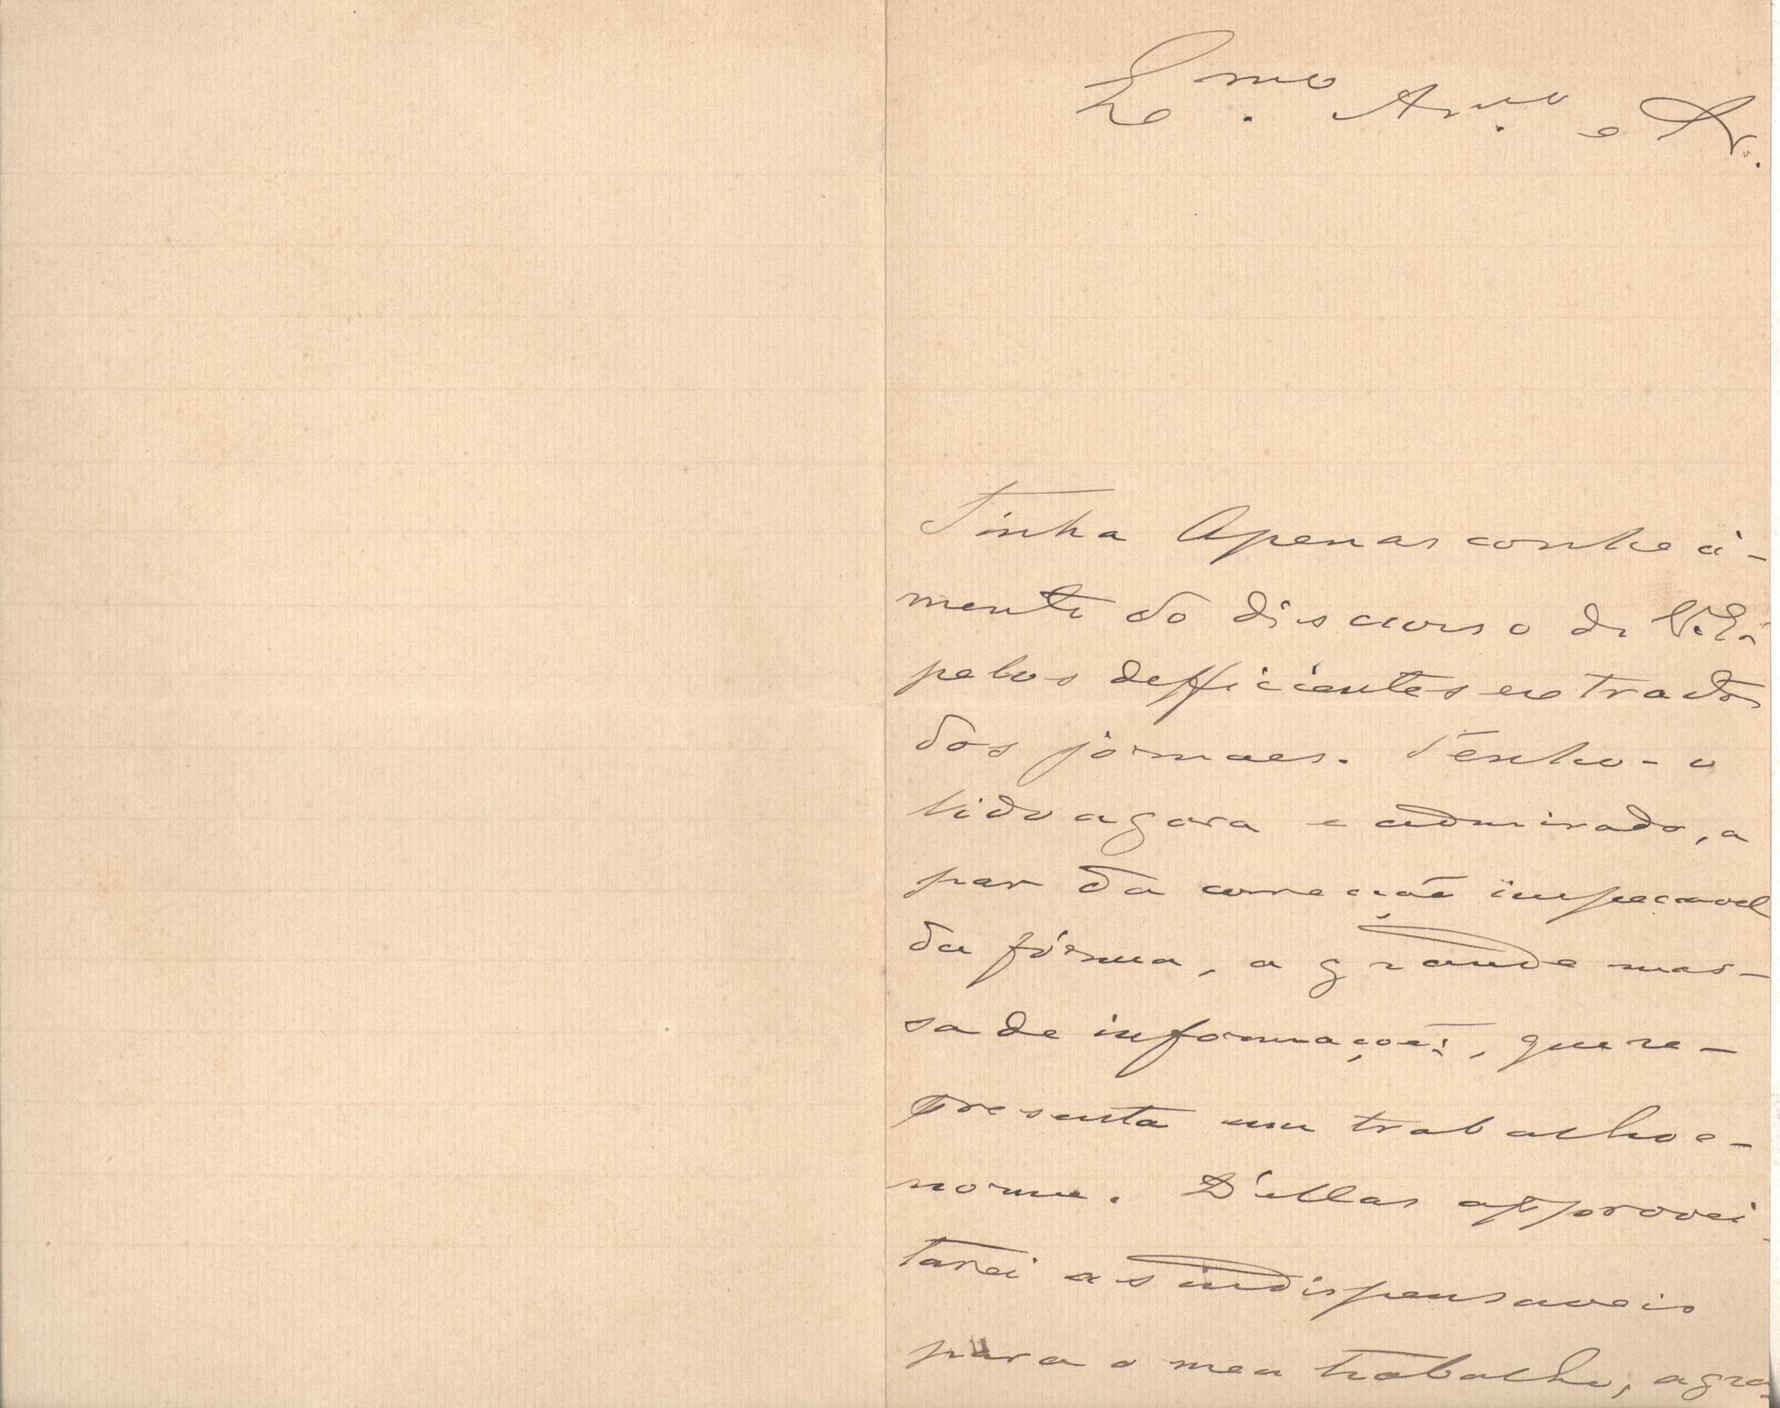 Ex.mo Am.o e Sr.
Tinha Apenas conheci-
mento do discurso de V. Ex.a
pelos defficientes extractos
dos jornaes. Tenho-o
lido agora e admirado, a
par da correcção impecavel
da fórma, a grande mas-
sa de informações, que re-
presenta um trabalho e-
norme. D'ellas approvei-
tarei as indispensaveis
para o meu trabalho, agra-